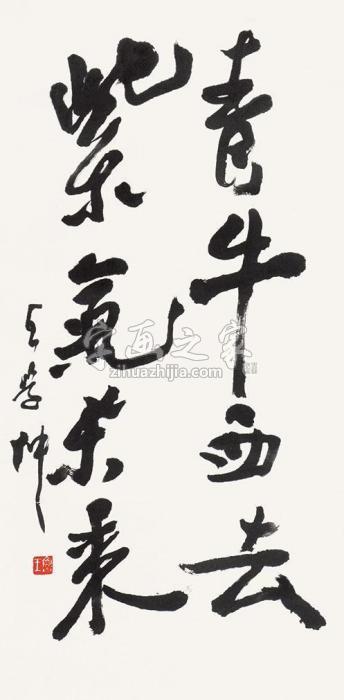 青牛西去
紫氣东来
王学仲
字画之家
zihuazhijia.com